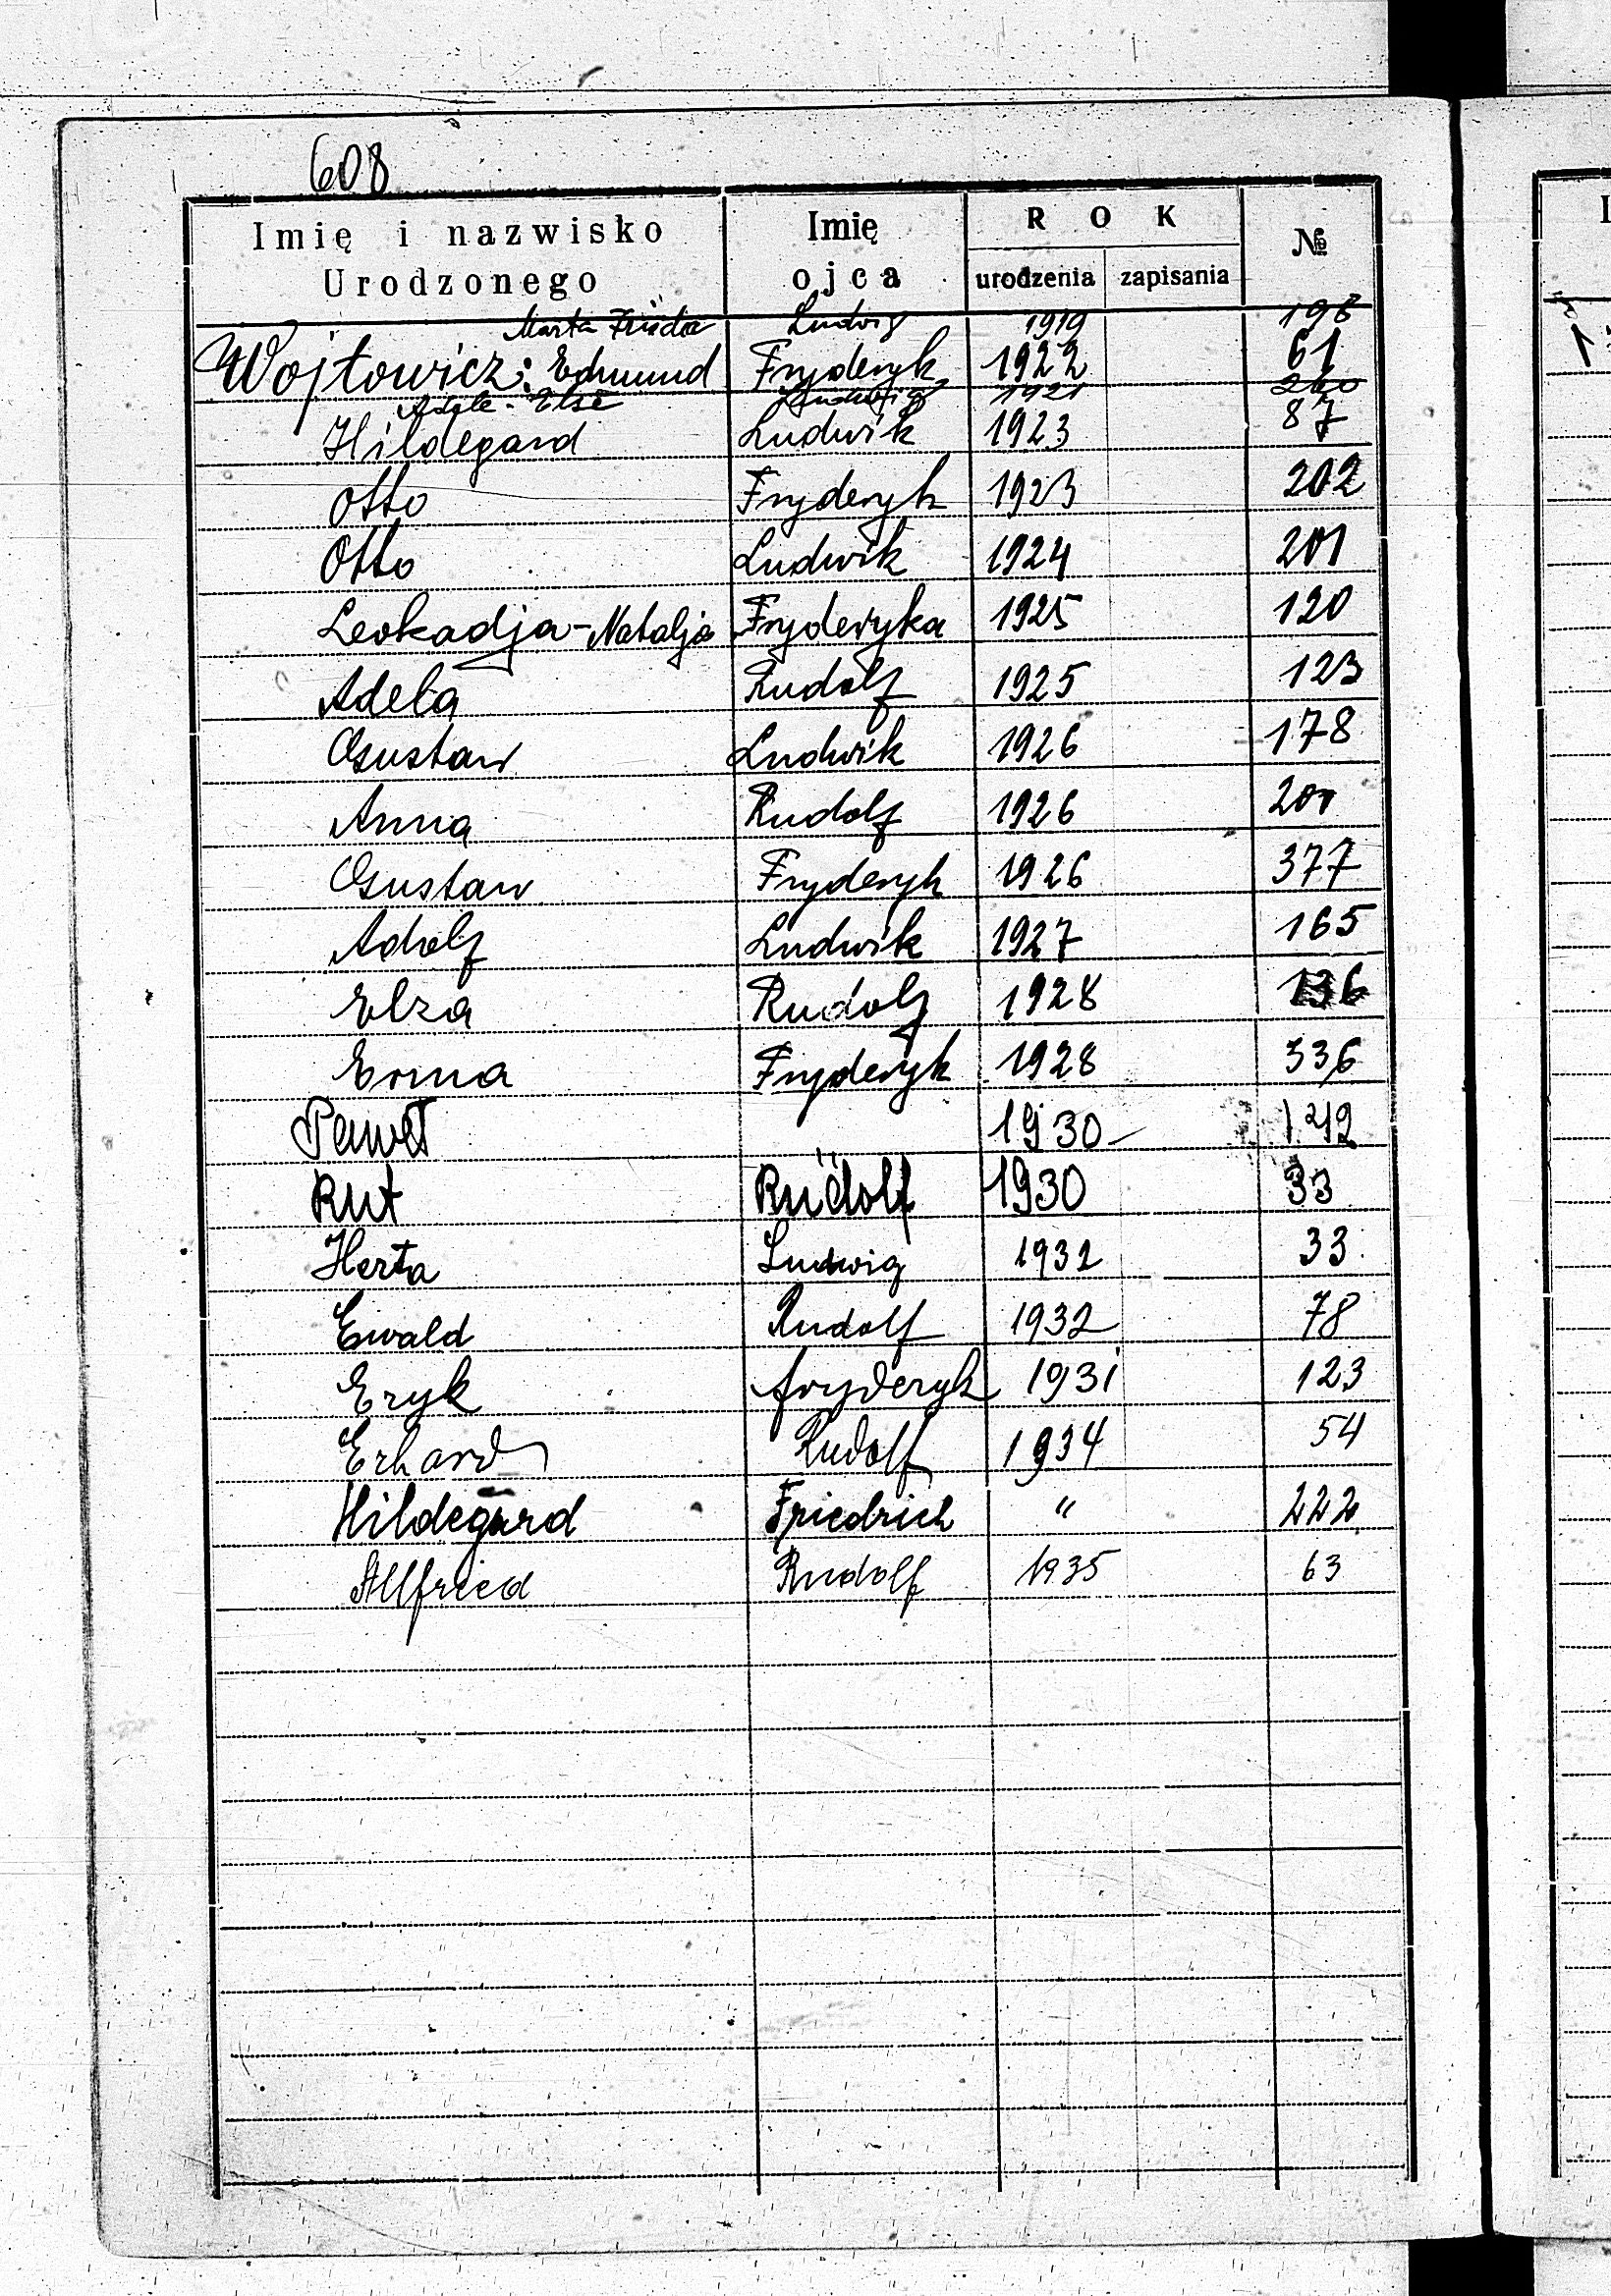 608
Imię i nazwisko Urodzonego Imię ojca ROK urodzenia zapisania №
Marta Frieda Ludwig 1919 198
Wojtowicz: Edmund Fryderyk 1922 61
Adele - Else Ludwig 1921 260
Hildegard Ludwik 1923 87
Otto Fryderyk 1923 202
Otto Ludwik 1924 201
Leokadja-Natalja Fryderyka 1925 120
Adela Rudolf 1925 123
Gustaw Ludwik 1926 178
Anna Rudolf 1926 201
Gustaw Fryderyk 1926 377
Adolf Ludwik 1927 165
Elza Rudolf 1928 136
Erna Fryderyk 1928 336
Paweł 1930 142
Rut Rudolf 1930 33
Herta Ludwig 1932 33
Ewald Rudolf 1932 78
Eryk fryderyk 1931 123
Erhard Rudolf 1934 54
Hildegard Friedrich " 222
Allfried Rudolf 1935 63